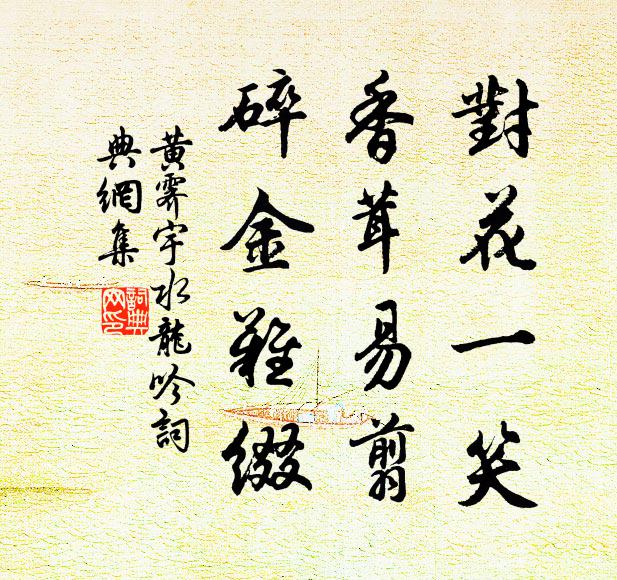 對花一笑
香茸易翦
碎金難綴
黃霽宇水龍吟詞
典網集
詞典網印